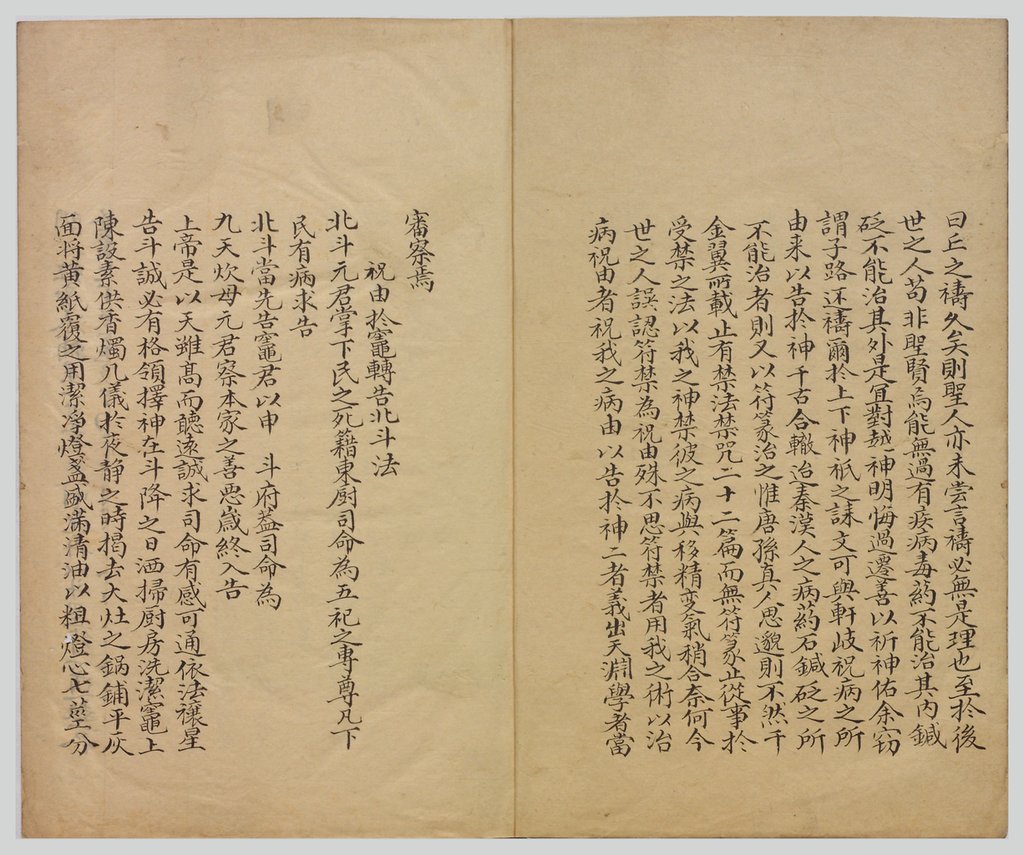 曰丘之禱久矣則聖人亦未嘗言禱必無是理也至於後
世之人苟非聖賢烏能無過有疾病毒葯不能治其内鍼
砭不能治其外是宜對越神明悔過遷善以祈神佑余窃
謂子路还禱爾於上下神祇之誄文可與軒岐祝病之所
由来以告於神千古合轍迨秦漢人之病葯石鍼砭之所
不能治者則又以符篆治之惟唐孫真人思邈則不然千
金翼所載止有禁法禁咒二十二篇而無符篆止從事於
受禁之法以我之神禁彼之病與移精变氣稍合奈何今
世之人誤認符禁為祝由殊不思符禁者用我之術以治
病祝由者祝我之病由以告於神二者義出天淵學者當
審察焉
祝由於竈轉告北斗法
北斗元君掌下民之死籍東厨司命為五祀之專尊凡下
民有病求告
北斗當先告竈君以申 斗府葢司命為
九天炊母元君察本家之善恶嵗終入告
上帝是以天雖髙而聽遠誠求司命有感可通依法禳星
告斗誠必有格領擇神在斗降之日洒掃厨房洗潔竈上
陳設素供香燭几儀於夜静之時揭去大灶之鍋鋪平灰
面将黄紙覆之用潔净燈盞盛滿清油以粗燈心七莖分